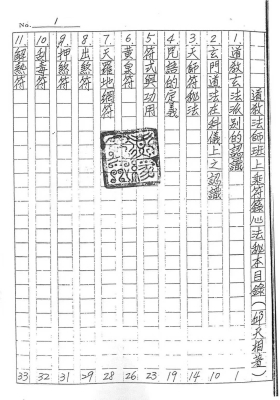 No. 1
道教法師班上乘符籙心法秘本目錄（邱天相著）
1. 道教玄法派别的認識 1
2. 玄門道法在科儀上之認識 10
3. 天師符秘法 14
4. 咒語的定義 19
5. 符式與功用 23
6. 黃皇符 26
7. 天羅地網符 28
8. 出煞符 29
9. 押煞符 31
10. 刮毒符 32
11. 解煞符 33